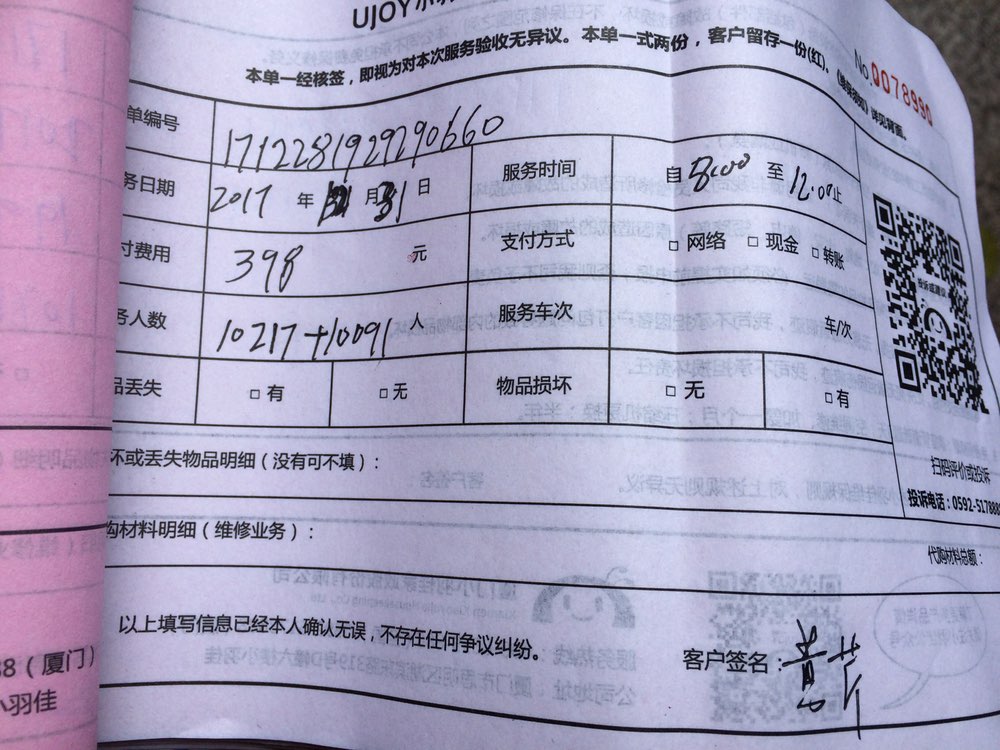 UJOY小羽
本单一经核签，即视为对本次服务验收无异议。本单一式两份，客户留存一份(红)。
详见背面。
No.0078990
单编号 171228192929290660
务日期 2017 年 月 31 日 服务时间 自 8:00 至 12:00 止
付费用 398 元 支付方式 □ 网络 □ 现金 □ 转账
务人数 10217+10091 人 服务车次 车/次
品丢失 □ 有 □ 无 物品损坏 □ 无 □ 有
投诉或建议
扫码评价或投诉
投诉电话：0592-517888
坏或丢失物品明细（没有可不填）：
购材料明细（维修业务）：
代购材料总额：
以上填写信息已经本人确认无误，不存在任何争议纠纷。
客户签名：
88（厦门）
小羽佳